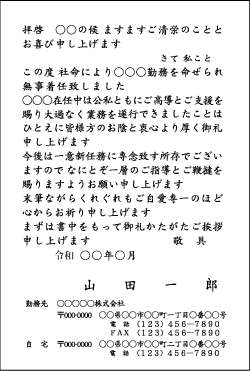 拝啓　〇〇の候 ますますご清栄のこととお喜び申し上げます
さて 私こと
この度 社命により〇〇〇勤務を命ぜられ
無事着任致しました
〇〇〇在任中は公私ともにご高導とご支援を
賜り大過なく業務を遂行できましたことは
ひとえに皆様方のお陰と衷心より厚く御礼
申し上げます
今後は一意新任務に専念致す所存でござい
ますので なにとぞ一層のご指導とご鞭撻を
賜りますようお願い申し上げます
末筆ながらくれぐれもご自愛専一のほど
心からお祈り申し上げます
まずは書中をもって御礼かたがたご挨拶
申し上げます　　　　　敬　具
令和 〇〇年〇月
山　田　一　郎
勤務先　〇〇〇〇〇株式会社
〒000-0000　〇〇県〇〇市〇〇町一丁目〇番〇〇号
電　話　(123) 456-7890
FAX　(123) 456-7890
自　宅　〒000-0000　〇〇県〇〇市〇〇町二丁目〇番〇〇号
電　話　(123) 456-7890